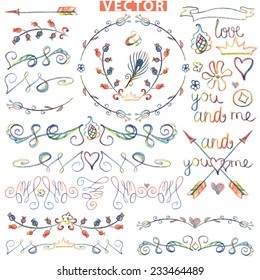 VECTOR
love
you
and me
and
you me
www.shutterstock.com · 233464489